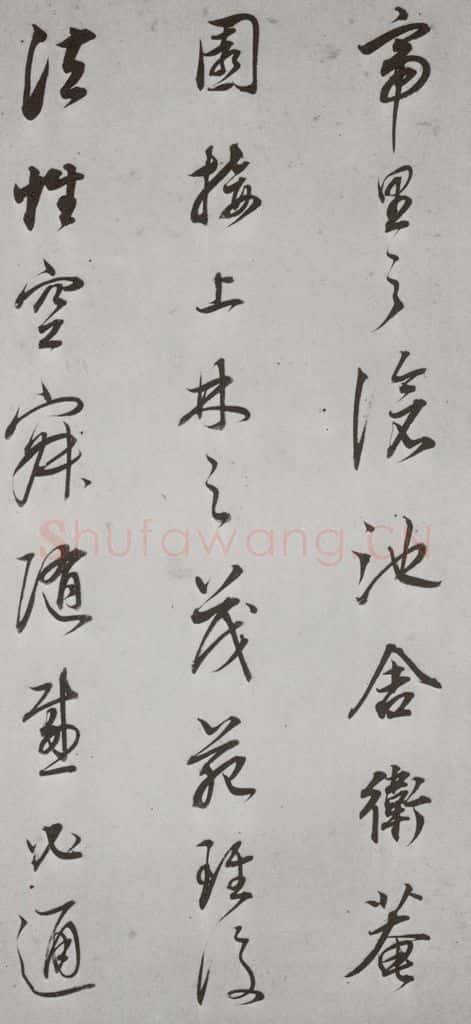 帝里之滄池舍衛菴
園接上林之茂苑雖復
法性空寂隨感必通
Shufawang.CN